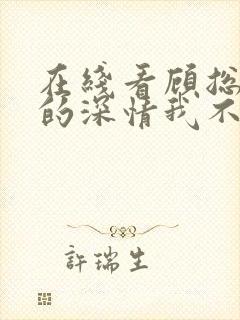 在綫看顧总
的深情我不
許瑞生